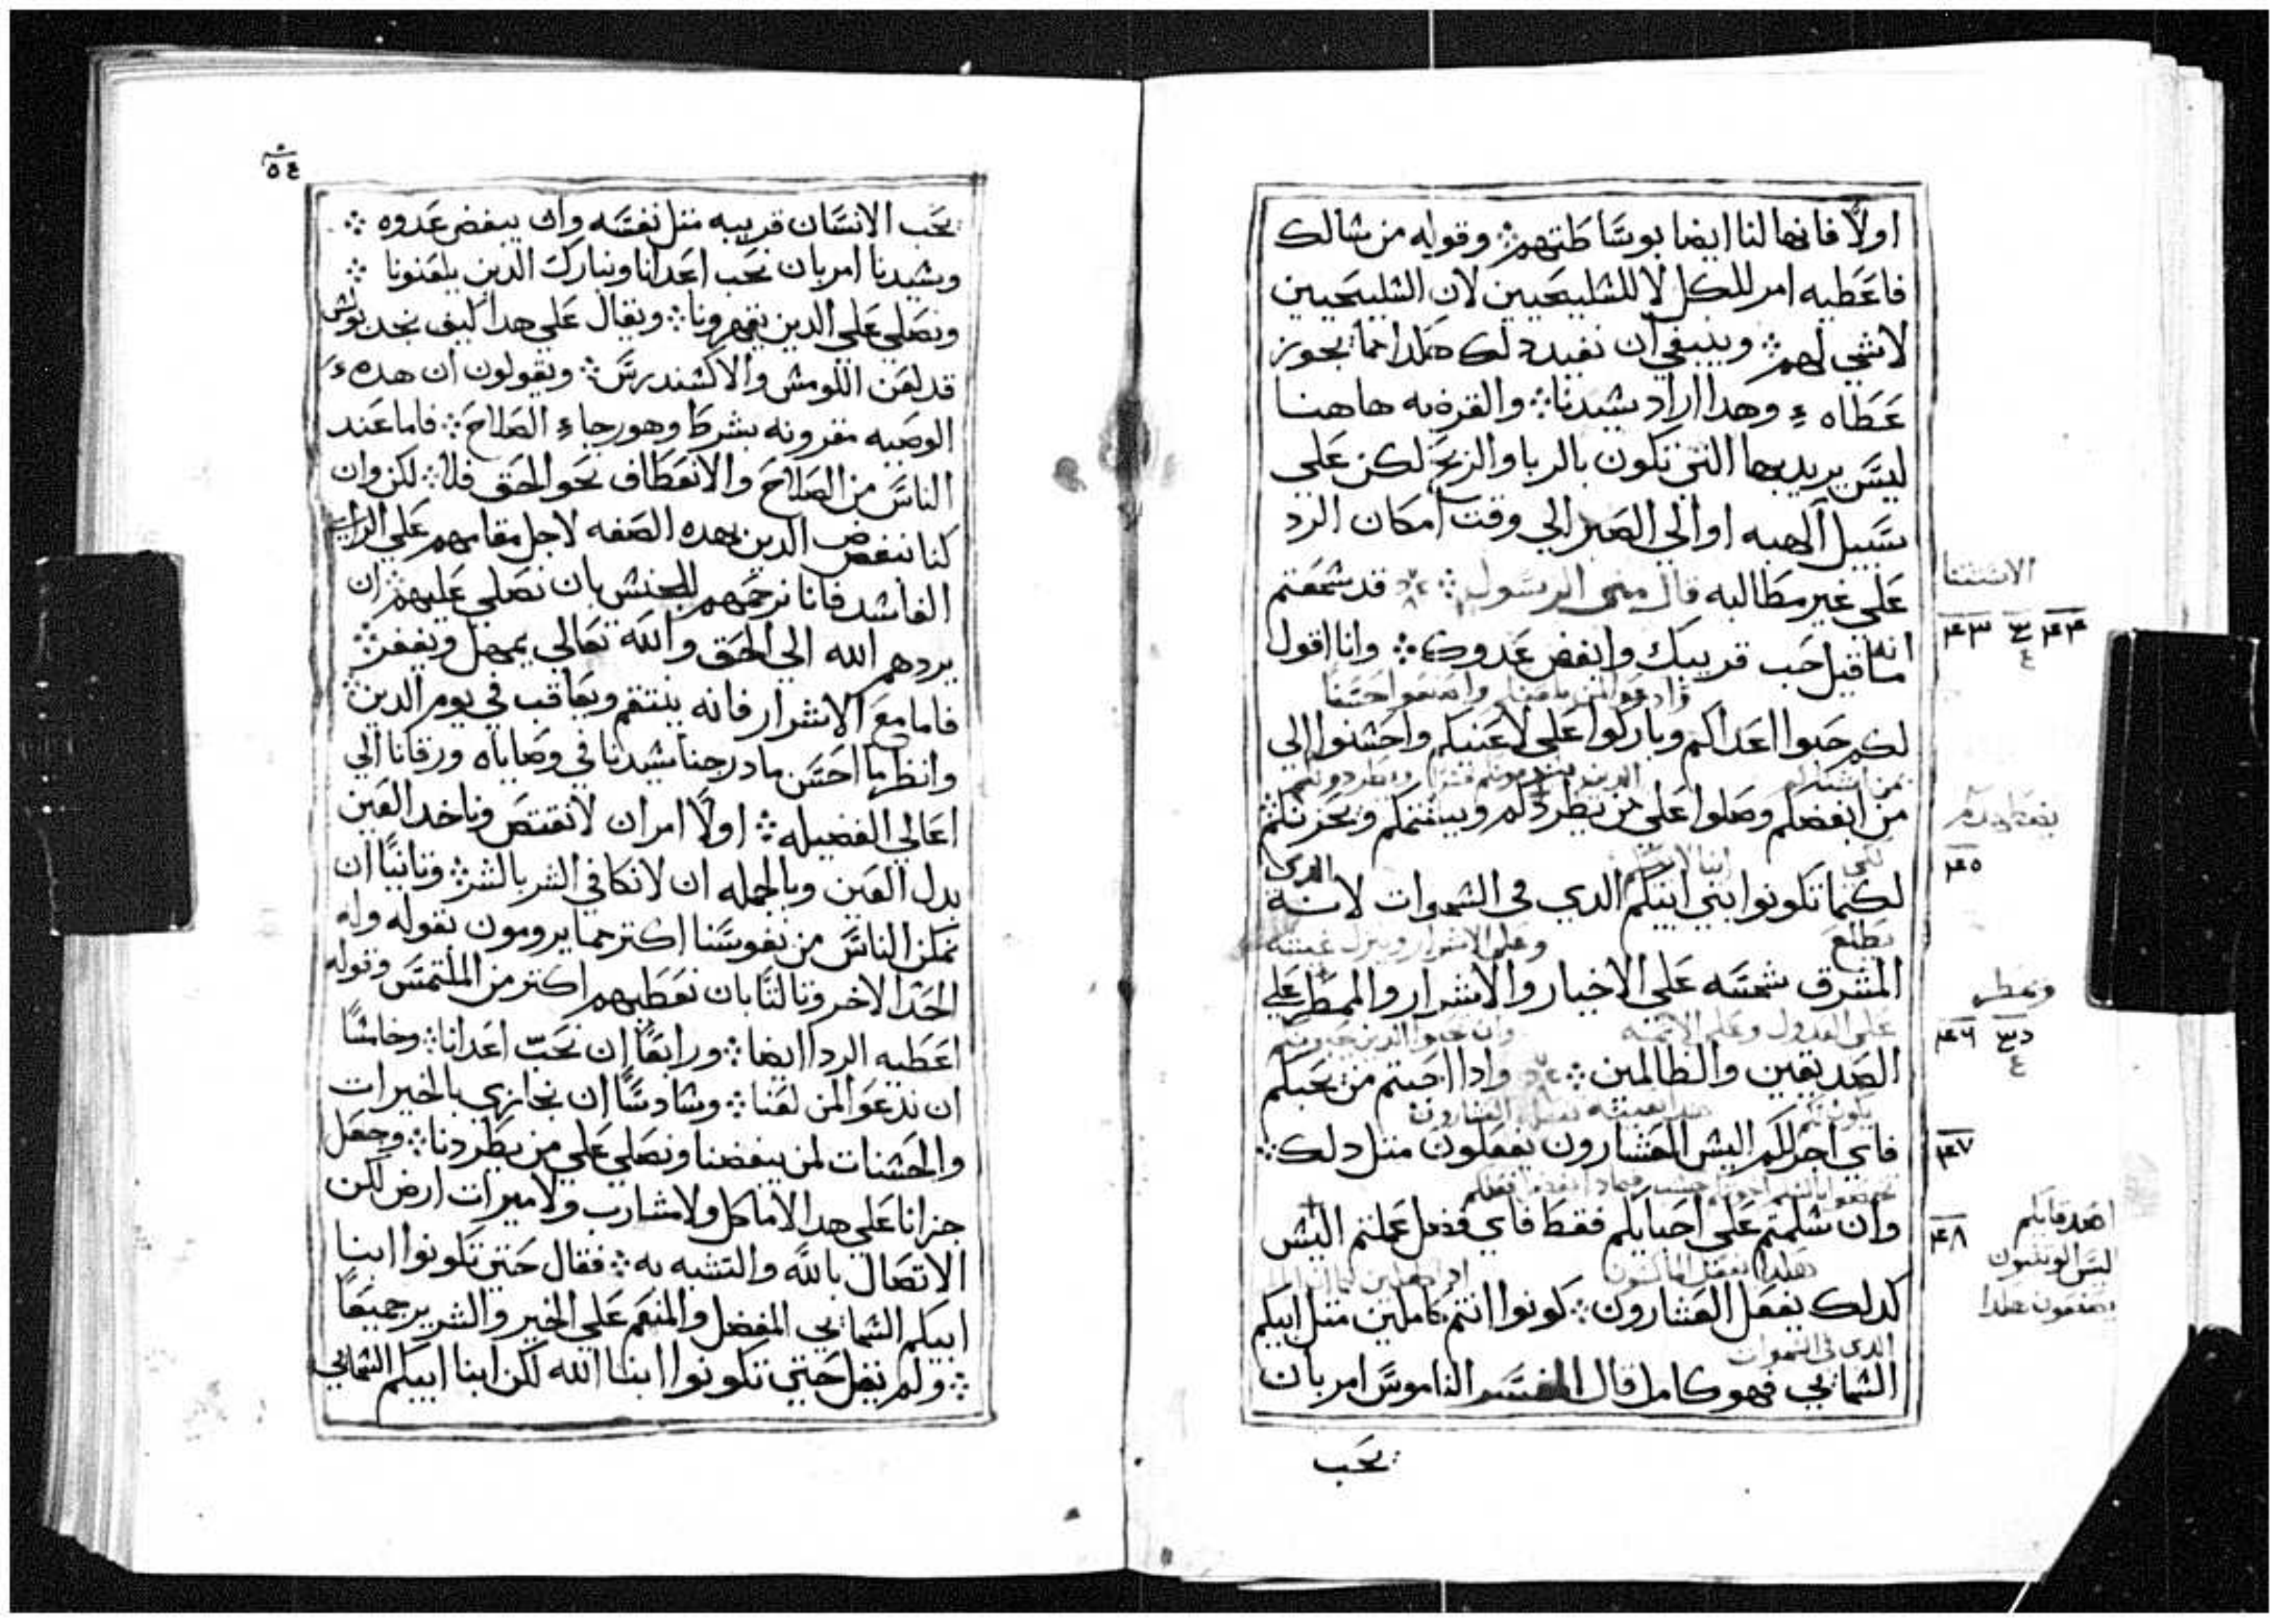 اولًا فانها لنا ايضا بوسَّاطتهم ⁘ وقوله من شالك
فاعَطيه امر للكل لا للشليحَيين لان الشليحَيين
لاشي لهم ⁘ وينبغي ان نفيد دلك هكدا مما يجوز
عَطاه ء وهدا اراد شيدنا ⁘ والقرضه هاهنا
ليسَّ يريد بها التي تكون بالربا والربحَ لكن عَلي
سَّبيل الهبه او الي الصَبر الي وقت امكان الرد
عَلي غير مطالبه قال متي الرسَّول ⁘ قد شمعَتم
انه
ما قيل حَب قريبك وابغض عَدوك ⁘ وانا اقول
لكم حَبوا اعَداكم وباركوا عَلي لاعَنيكم واحَشنوا الي
من ابغضكم وصَلوا عَلي من يطردكم ويبغتكم ويحَزنكم
لكيما تكونوا بني ابيكم الدي في الشموات لانه
الدي
تطلع
المشرق شمسَّه عَلي الاخيار والاشرار والممطر عَلي
الصَديقين والظالمين ⁘ وادا احَبتم من يحَبكم
فاي اجر لكم اليش العَشارون يفعَلون متل دلك ⁘
وان شلمتم عَلي احَبايكم فقط فاي فضل عَملتم اليش
كدلك يفعَل العَشارون ⁘ كونوا انتم كاملين متل ابيكم
الدي في السموات
الشمايي فهو كامل قال المفسَّر الناموسَّ امر بان
يحَب
الاشتتنا
٤٣ ٤٤
٤٥
وتمطر
٤٦
٤٧
٤٨
اصَدقايكم
ليسَ الوتنيون
يصنعون هكدا
٥٤
يحَب الانسَّان قريبه متل نفسَّه وان يبغض عَدوه ⁘
وشيدنا امر بان نحَب اعَدانا ونبارك الدين يلعَنونا ⁘
ونصَلي عَلي الدين يقهرونا ⁘ ويقال عَلي هدا كيف نجد بولش
قد لعَن اللومش والاكشندرسَّ ⁘ ويقولون ان هده
الوصَيه مقرونه بشرط وهو رجاء الصَلاحَ ⁘ فاما عَند
الناسَّ من الصَلاحَ والانعَطاف نحَو الحَق فلا ⁘ لكن وان
كنا نبغض الدين بهده الصَفه لاجل مقامهم عَلي الراي
الفاشد فانا نرحَمهم للجنش بان نصَلي عَليهم ⁘ ان
يردهم الله الي الحَق والله تعَالي يمهل ويغفر ⁘
فاما معَ الاشرار فانه ينتقم ويعَاقب في يوم الدين ⁘
وانظر ما احَسَّن ما درجنا شيدنا في وصَاياه ورقانا الي
اعَالي الفضيله ⁘ اولًا امر ان لا نقتصَ وناخد العَين
بدل العَين وبالجمله ان لا نكافي الشر بالشر ⁘ وتانيًا ان
نمكن الناسَّ من نفوسَّنا اكتر مما يرومون بقوله وله
الخد الاخر وتالتًا بان نعَطيهم اكتر من الملتمسَّ وقوله
اعَطيه الردا ايضا ⁘ ورابعًا ان نحَب اعَدانا ⁘ وخامسًا
ان ندعَوا لمن لعَنا ⁘ وشادسًّا ان نجازي بالخيرات
والحَشنات لمن يبغضنا ونصَلي عَلي من يطردنا ⁘ وجعَل
جزانا عَلي هدا لا ماكل ولا مشارب ولا ميرات ارض لكن
الاتصَال بالله والتشبه به ⁘ فقال حَتي تكونوا ابنا
ابيكم الشمايي المفضل والمنعَم عَلي الخير والشرير جميعًا
⁘ ولم يقل حَتي تكونوا ابنا الله لكن ابنا ابيكم الشمايي